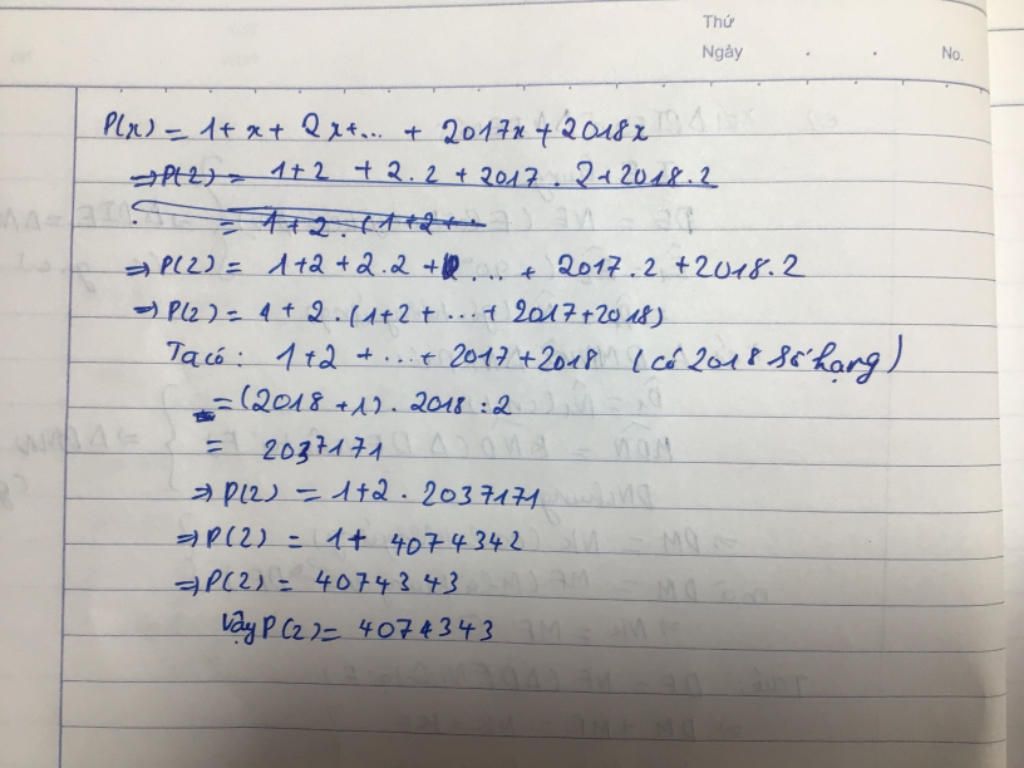 Thứ
Ngày . . No.
P(x) = 1+ x + 2x+... + 2017x + 2018x
⇒P(2) = 1+2 + 2.2 + 2017 . 2 + 2018.2
= 1+2.(1+2+..
⇒P(2) = 1+2 + 2.2 + ... + 2017.2 +2018.2
⇒P(2) = 1 + 2.(1+2 + ...+ 2017+2018)
Ta có: 1+2 +...+ 2017+2018 (có 2018 số hạng)
=(2018 +1). 2018 :2
= 2037171
⇒P(2) = 1+2. 2037171
⇒P(2) = 1+ 4074342
⇒P(2) = 4074343
Vậy P(2)= 4074343